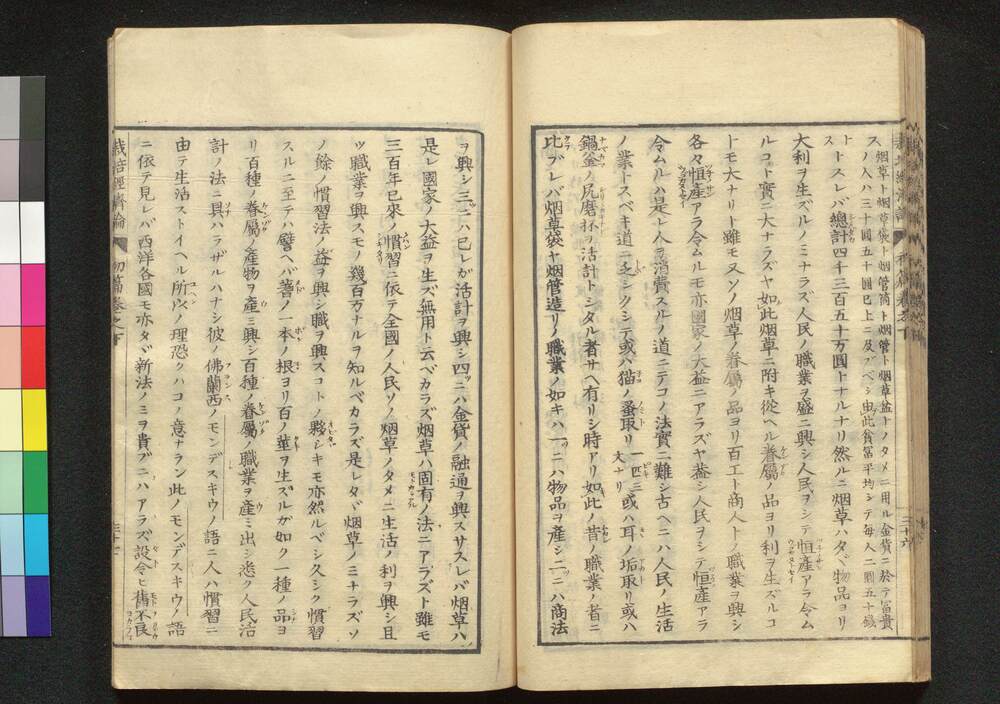 ス烟草ト烟草袋ト烟管筒ト烟管ト烟草盆トノタメニ用ル金貨ニ於テ富貴
ノ人ハ三十圓五十圓已上ニ及ブベシ由此貧冨平均シテ毎人二圓五十錢
トストスレバ總計四千三百五十万圓トナルナリ然ルニ烟草ハタヾ物品ヨリ
大利ヲ生ズルノミナラズ人民ノ職業ヲ盛ニ興シ人民ヲシテ恒産アラ令ム
ルコト實ニ大ナラズヤ如此烟草ニ附キ從ヘル眷屬ノ品ヨリ利ヲ生ズルコ
トモ大ナリト雖モ又ソノ烟草ノ眷屬ノ品ヨリ百工ト商人トノ職業ヲ興シ
各々恒産アラ令ムルモ亦國家ノ大益ニアラズヤ葢シ人民ヲシテ恒産アラ
令ムルハ是レ人ヲ消費スルノ道ニテコノ法實ニ難シ古ヘニハ人民ノ生活
ノ業トスベキ道ニ乏シクシテ或ハ猫ノ蚤取リ一匹三大ナリ或ハ耳ノ垢取リ或ハ
鍋釜ノ尻磨抔ヲ活計トシタル者サヘ有リシ時アリ如此ノ昔ノ職業ノ者ニ
比ブレバ烟草袋ヤ烟管造リノ職業ノ如キハ一ツニハ物品ヲ産シ二ツニハ商法
三十六
ヲ興シ三ツニハ已レガ活計ヲ興シ四ツニハ金貨ノ融通ヲ興スサスレバ烟草ハ
是レ國家ノ大益ヲ生ズ無用ト云ベカラズ烟草ハ固有ノ法ニアラズト雖モ
三百年已來ノ慣習ニ依テ全國ノ人民ソノ烟草ノタメニ生活ノ利ヲ興シ且
ツ職業ヲ興スモノ幾百万ナルヲ知ルベカラズ是レタヾ烟草ノミナラズソ
ノ餘ノ慣習法ノ益ヲ興シ職ヲ興スコトノ夥シキモ亦然ルベシ久シク慣習
スルニ至テハ譬ヘバ蓍ノ一本ノ根ヨリ百ノ莖ヲ生ズルガ如ク一種ノ品ヨ
リ百種ノ眷屬ノ産物ヲ産ミ興シ百種ノ眷屬ノ職業ヲ産ミ出シ悉ク人民活
計ノ法ニ具ハラザルハナシ彼ノ佛蘭西ノモンデスキウノ語ニ人ハ慣習ニ
由テ生活ストイヘル所以ノ理恐クハコノ意ナラン此ノモンデスキウノ語
ニ依テ見レバ西洋各國モ亦タヾ新法ノミヲ貴ブニハアラズ設令ヒ舊不良
栽培經濟論 初篇卷之下